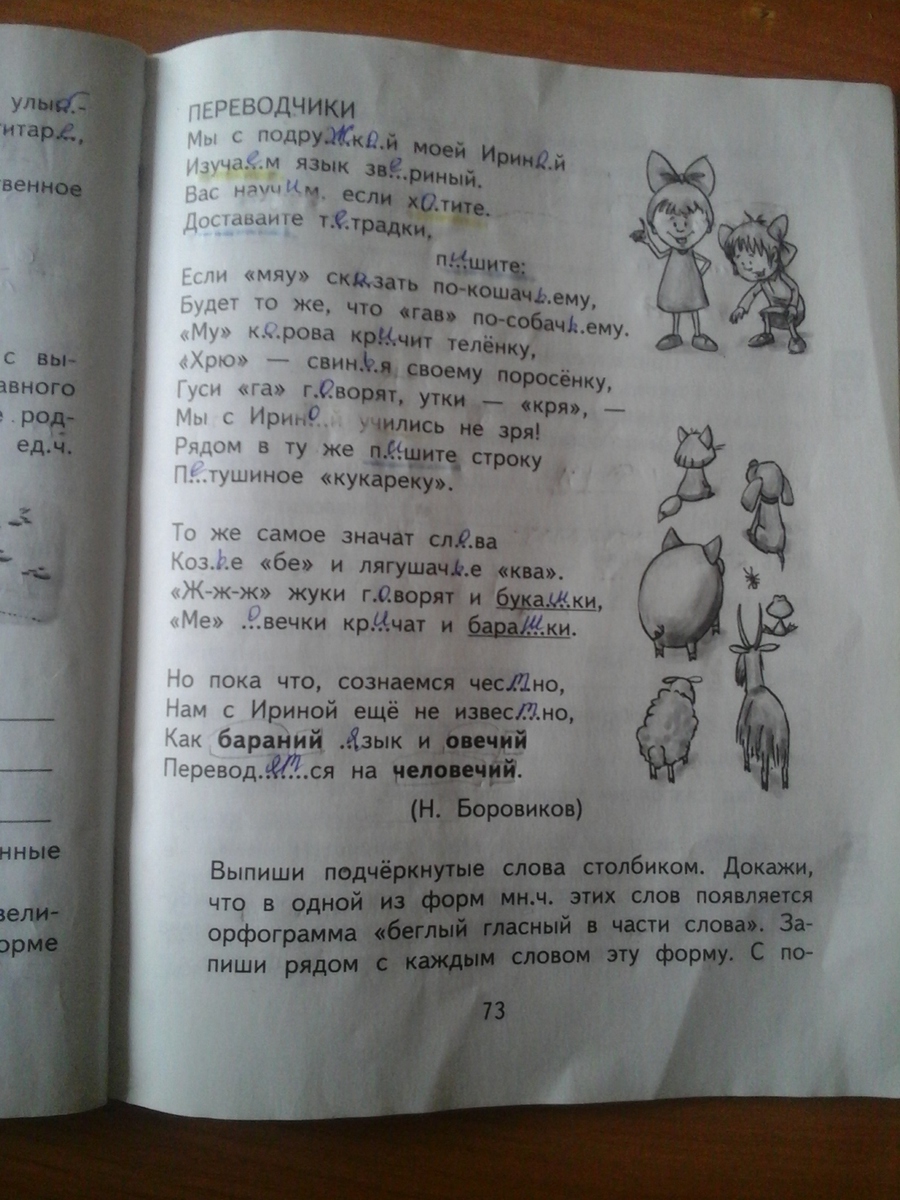 улыб.-
гитар.е.,
твенное
с вы-
авного
е род-
ед.ч.
нные
вели-
орме
ПЕРЕВОДЧИКИ
Мы с подру.ж.к.о.й моей Ирин.о.й
Изуча.е.м язык зв.е..риный.
Вас науч.и.м, если х.о.тите.
Доставайте т.е.традки,
п.и.шите:
Если «мяу» ск.а.зать по-кошач.ь.ему,
Будет то же, что «гав» по-собач.ь.ему.
«Му» к.о.рова кр.и.чит телёнку,
«Хрю» — свин.ь.я своему поросёнку,
Гуси «га» г.о.ворят, утки — «кря», —
Мы с Ирин.о.й учились не зря!
Рядом в ту же п.и.шите строку
П.е.тушиное «кукареку».
То же самое значат сл.о.ва
Коз.ь.е «бе» и лягушач.ь.е «ква».
«Ж-ж-ж» жуки г.о.ворят и бука.ш.ки,
«Ме» .о.вечки кр.и.чат и бара.ш.ки.
Но пока что, сознаемся чес.т.но,
Нам с Ириной ещё не извес.т.но,
Как бараний .я.зык и овечий
Перевод.ят.ся на человечий.
(Н. Боровиков)
Выпиши подчёркнутые слова столбиком. Докажи,
что в одной из форм мн.ч. этих слов появляется
орфограмма «беглый гласный в части слова». За-
пиши рядом с каждым словом эту форму. С по-
73